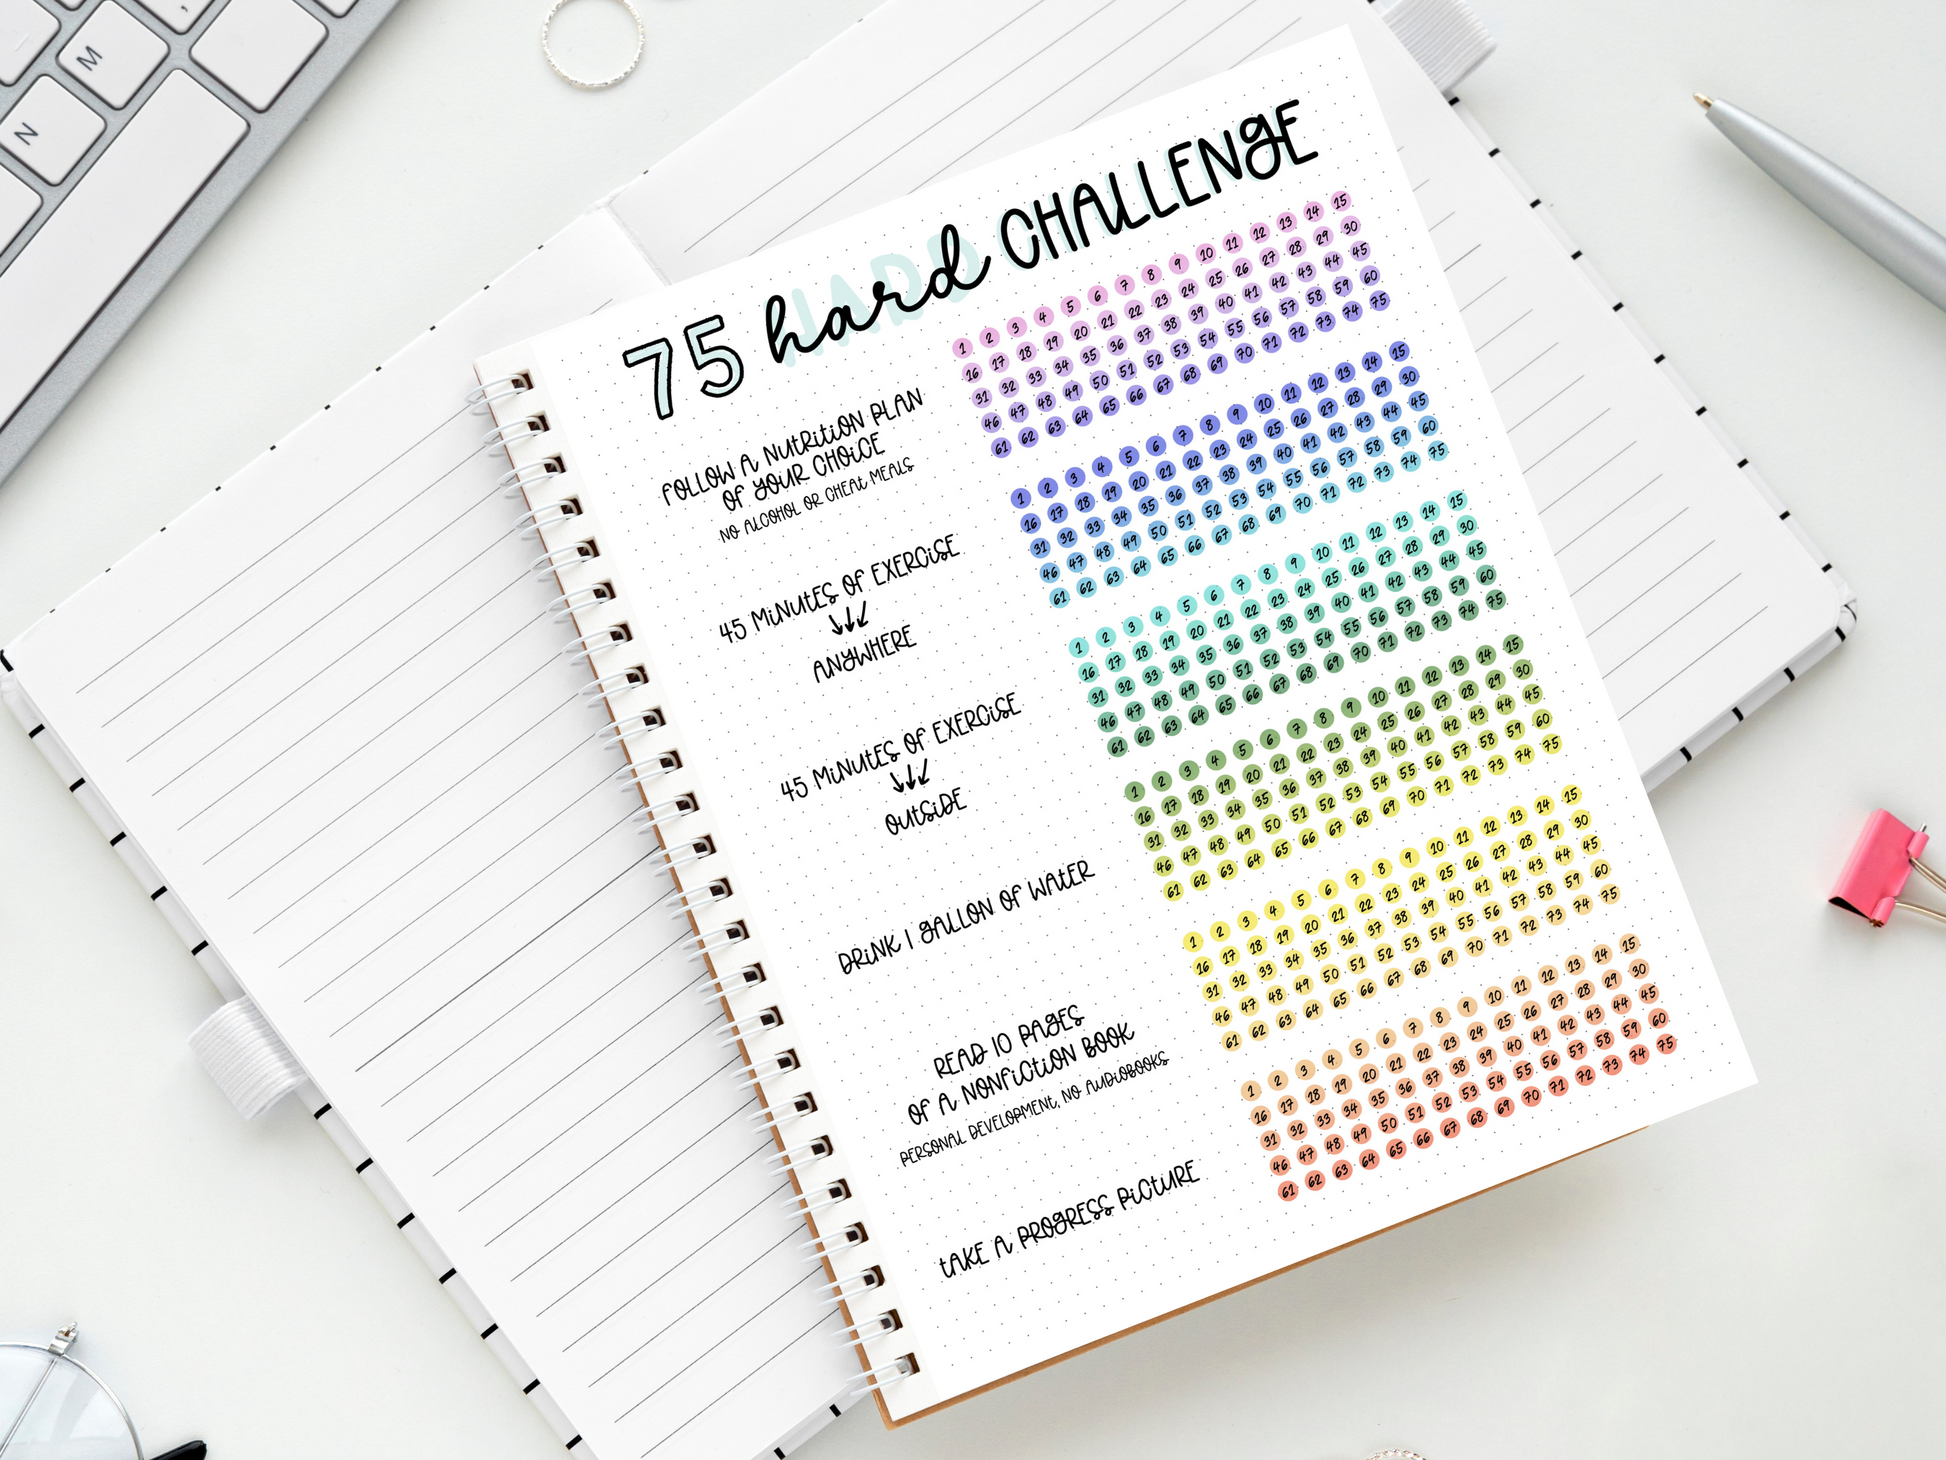 M
N
75 hard CHALLENGE
HARD
FOLLOW A NUTRITION PLAN
OF YOUR CHOICE
NO ALCOHOL OR CHEAT MEALS
1 2 3 4 5 6 7 8 9 10 11 12 13 14 15
16 17 18 19 20 21 22 23 24 25 26 27 28 29 30
31 32 33 34 35 36 37 38 39 40 41 42 43 44 45
46 47 48 49 50 51 52 53 54 55 56 57 58 59 60
61 62 63 64 65 66 67 68 69 70 71 72 73 74 75
45 MINUTES OF EXERCISE
ANYWHERE
1 2 3 4 5 6 7 8 9 10 11 12 13 14 15
16 17 18 19 20 21 22 23 24 25 26 27 28 29 30
31 32 33 34 35 36 37 38 39 40 41 42 43 44 45
46 47 48 49 50 51 52 53 54 55 56 57 58 59 60
61 62 63 64 65 66 67 68 69 70 71 72 73 74 75
45 MINUTES OF EXERCISE
OUTSIDE
1 2 3 4 5 6 7 8 9 10 11 12 13 14 15
16 17 18 19 20 21 22 23 24 25 26 27 28 29 30
31 32 33 34 35 36 37 38 39 40 41 42 43 44 45
46 47 48 49 50 51 52 53 54 55 56 57 58 59 60
61 62 63 64 65 66 67 68 69 70 71 72 73 74 75
DRINK 1 GALLON OF WATER
1 2 3 4 5 6 7 8 9 10 11 12 13 14 15
16 17 18 19 20 21 22 23 24 25 26 27 28 29 30
31 32 33 34 35 36 37 38 39 40 41 42 43 44 45
46 47 48 49 50 51 52 53 54 55 56 57 58 59 60
61 62 63 64 65 66 67 68 69 70 71 72 73 74 75
READ 10 PAGES
OF A NONFICTION BOOK
PERSONAL DEVELOPMENT, NO AUDIOBOOKS
1 2 3 4 5 6 7 8 9 10 11 12 13 14 15
16 17 18 19 20 21 22 23 24 25 26 27 28 29 30
31 32 33 34 35 36 37 38 39 40 41 42 43 44 45
46 47 48 49 50 51 52 53 54 55 56 57 58 59 60
61 62 63 64 65 66 67 68 69 70 71 72 73 74 75
TAKE A PROGRESS PICTURE
1 2 3 4 5 6 7 8 9 10 11 12 13 14 15
16 17 18 19 20 21 22 23 24 25 26 27 28 29 30
31 32 33 34 35 36 37 38 39 40 41 42 43 44 45
46 47 48 49 50 51 52 53 54 55 56 57 58 59 60
61 62 63 64 65 66 67 68 69 70 71 72 73 74 75